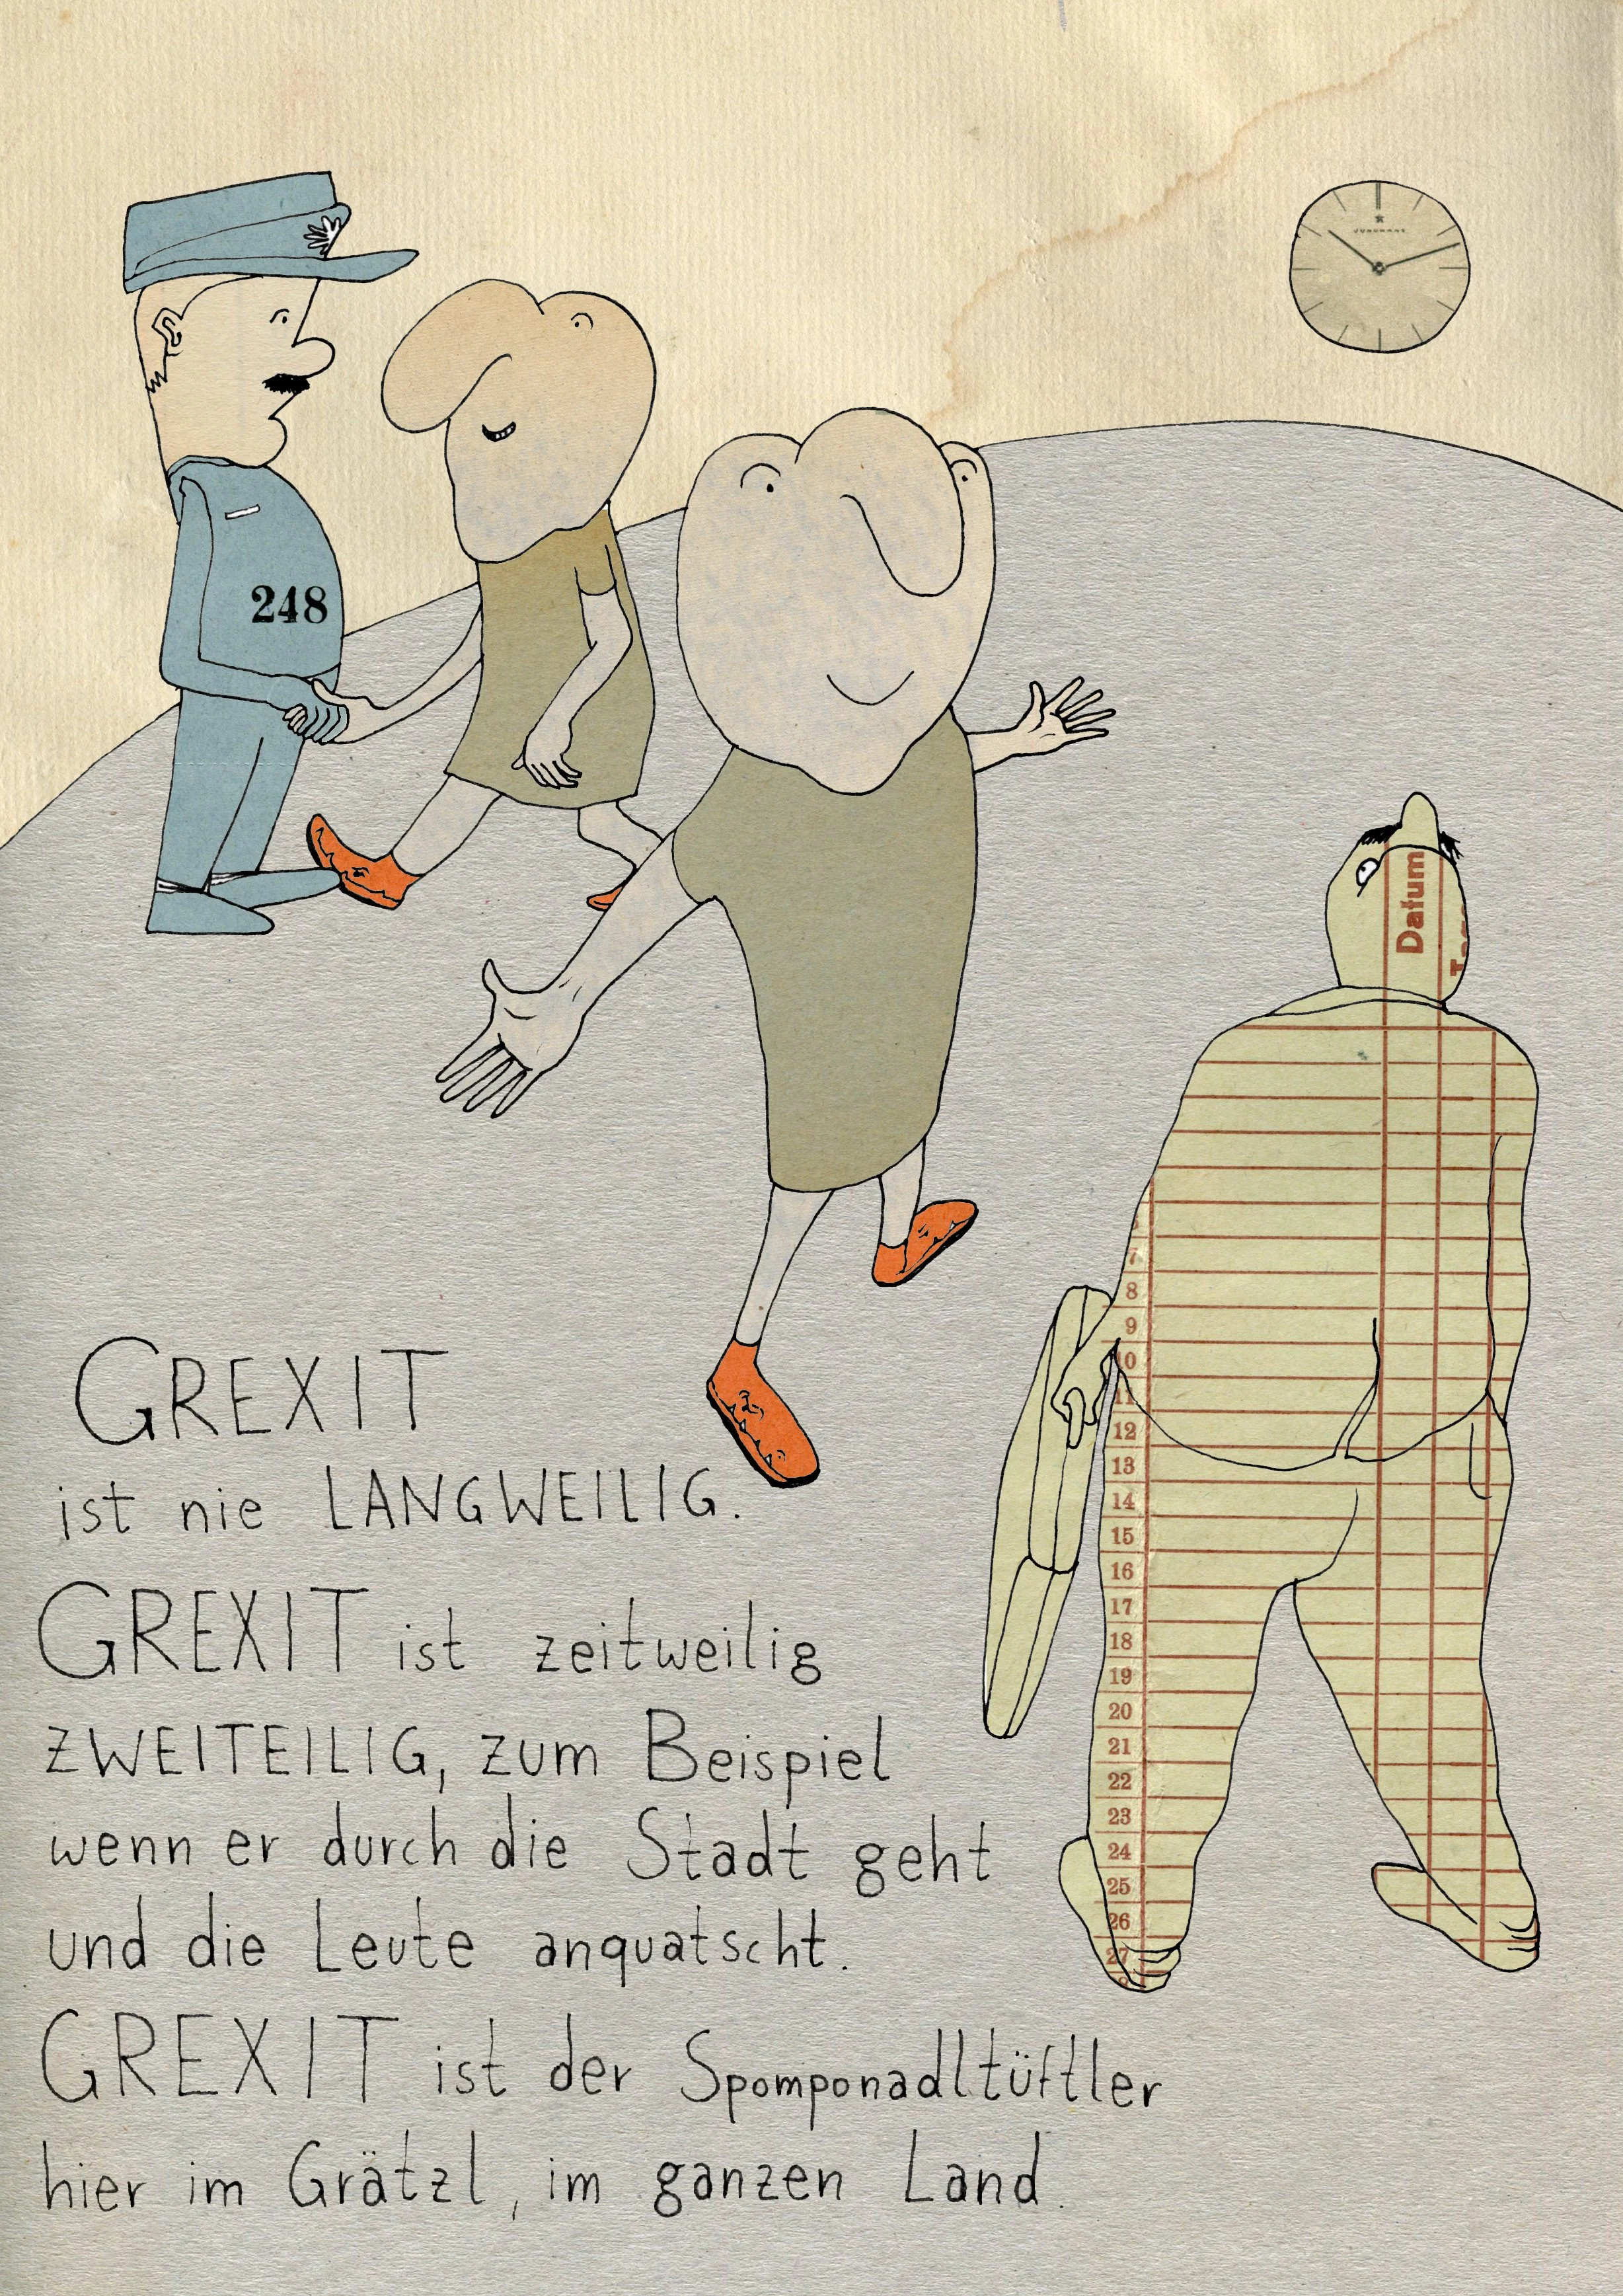 JUNGHANS
248
Datum
7
8
9
10
11
12
13
14
15
16
17
18
19
20
21
22
23
24
25
26
27
GREXIT
ist nie LANGWEILIG.
GREXIT ist zeitweilig
ZWEITEILIG, zum Beispiel
wenn er durch die Stadt geht
und die Leute anquatscht.
GREXIT ist der Spomponadltüftler
hier im Grätzl, im ganzen Land.